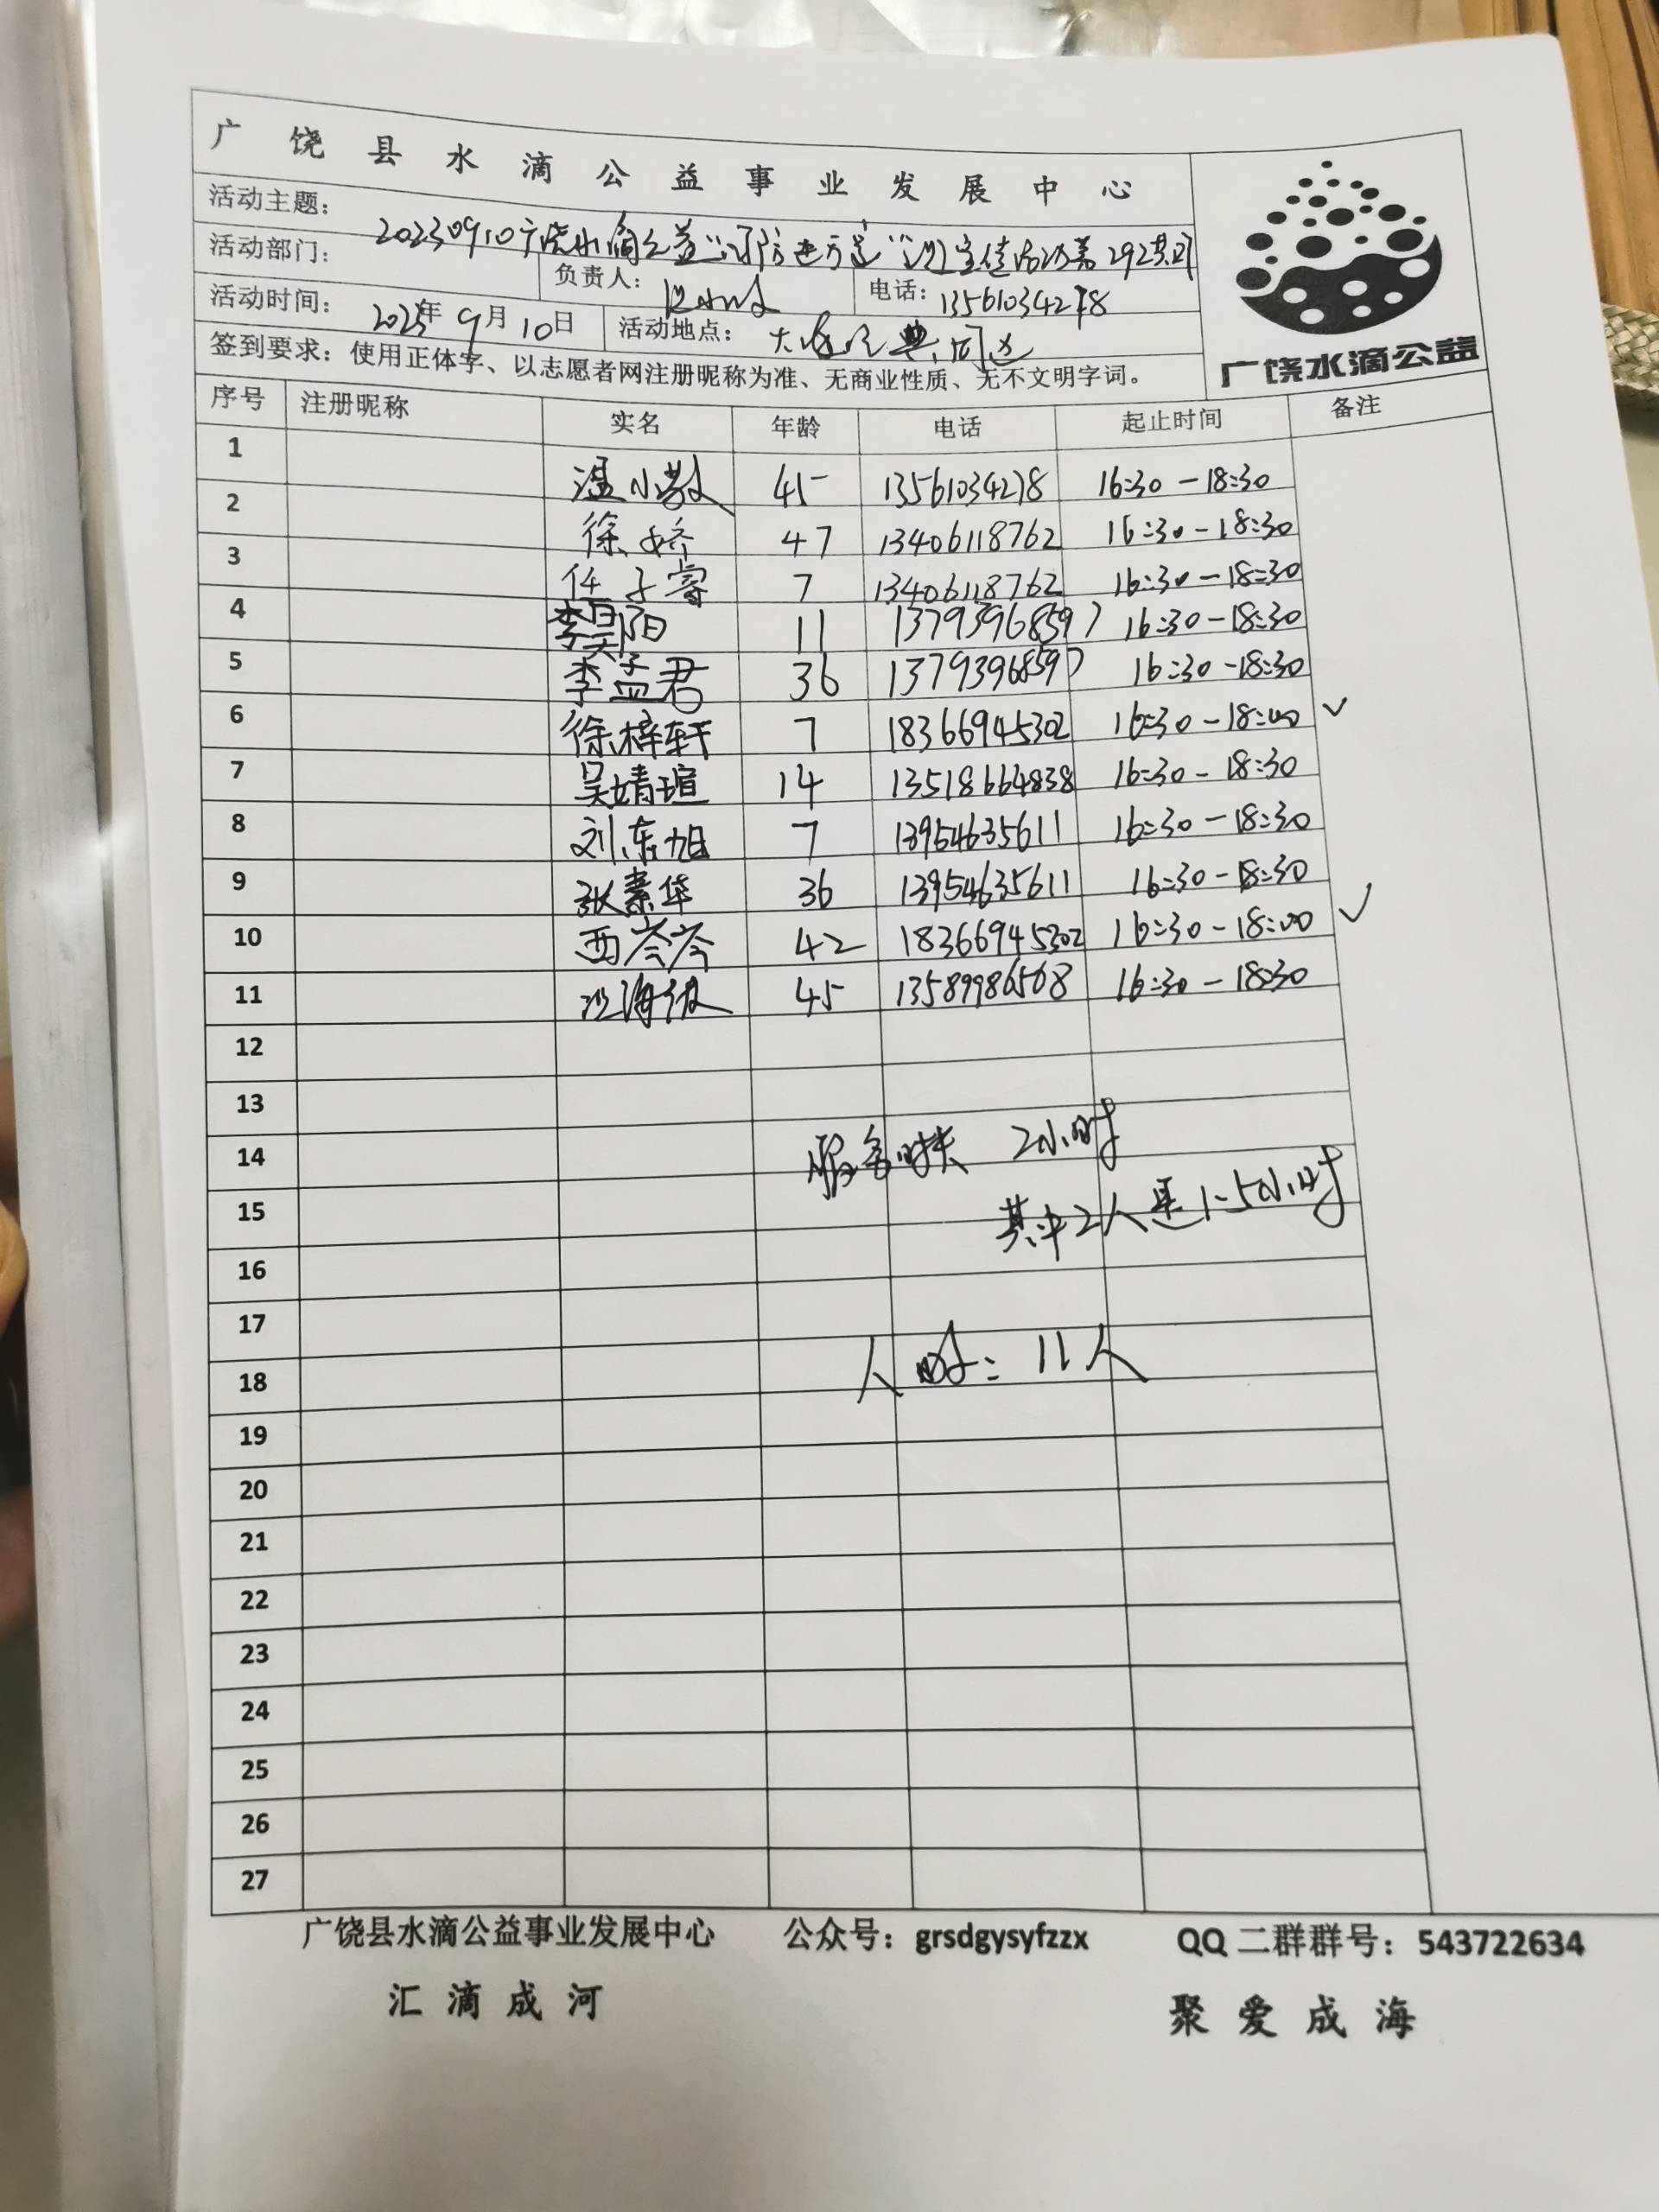 广饶县水滴公益事业发展中心
活动主题：
20230910广饶水滴公益 292期
活动部门： 负责人： 电话：13561034278
活动时间：2023年9月10日 活动地点：大海经典周边
签到要求：使用正体字、以志愿者网注册昵称为准、无商业性质、无不文明字词。
广饶水滴公益
序号 注册昵称 实名 年龄 电话 起止时间 备注
1 温小敏 45 13561034278 16:30-18:30
2 徐娇 47 13406118762 16:30-18:30
3 任子睿 7 13406118762 16:30-18:30
4 李昊阳 11 13793968597 16:30-18:30
5 李孟君 36 13793968597 16:30-18:30
6 徐梓轩 7 18366945302 16:30-18:00 ✓
7 吴婧瑄 14 13518664838 16:30-18:30
8 刘东旭 7 13954635611 16:30-18:30
9 张素华 36 13954635611 16:30-18:30
10 西岑岑 42 18366945302 16:30-18:00 ✓
11 45 13589986568 16:30-18:30
12
13
14 服务时长 2小时
15 其中2人是1.5小时
16
17
18 人时：11人
19
20
21
22
23
24
25
26
27
广饶县水滴公益事业发展中心 公众号：grsdgysyfzzx QQ 二群群号：543722634
汇滴成河 聚爱成海